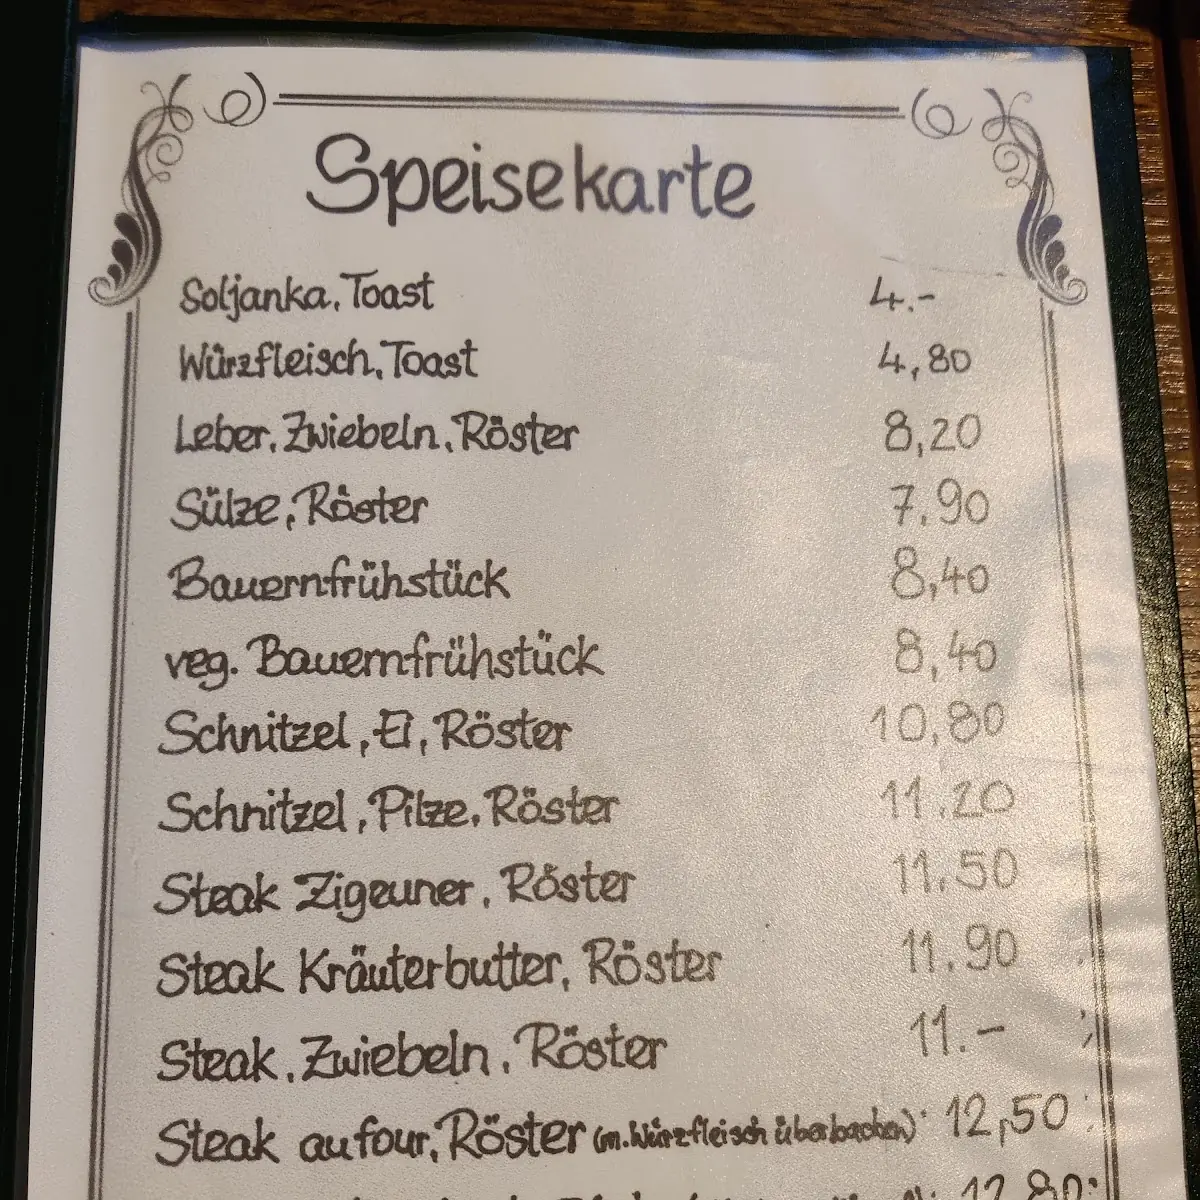 Speisekarte
Soljanka, Toast 4.-
Würzfleisch, Toast 4,80
Leber, Zwiebeln, Röster 8,20
Sülze, Röster 7.90
Bauernfrühstück 8,40
veg. Bauernfrühstück 8,40
Schnitzel, Ei, Röster 10,80
Schnitzel, Pilze, Röster 11.20
Steak Zigeuner, Röster 11.50
Steak Kräuterbutter, Röster 11.90
Steak, Zwiebeln, Röster 11.-
Steak aufour, Röster (m. Würzfleisch überbacken) 12,50
12,80